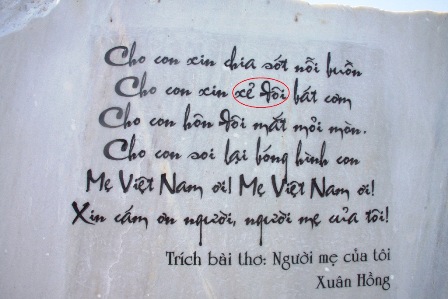 Cho con xin chia sót nỗi buồn
Cho con xin xẻ đôi bát cơm
Cho con hôn đôi mắt mỏi mòn.
Cho con soi lại bóng hình con
Mẹ Việt Nam ơi! Mẹ Việt Nam ơi!
Xin cám ơn người, người mẹ của tôi!
Trích bài thơ: Người mẹ của tôi
Xuân Hồng